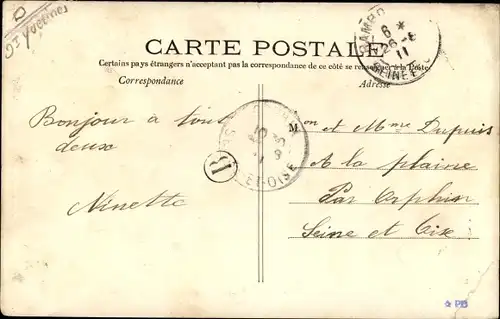 D
Yvelines
CARTE POSTALE
Certains pays étrangers n'acceptent pas la correspondance de ce côté se renseigner à la Poste
Correspondance
Adresse
6 *
26-6
11
Bonjour a tout
deux
Ninette
B
ET-OISE
Mon et Mme Dupuis
A la plaine
Par Orphin
Seine et Oise
PB